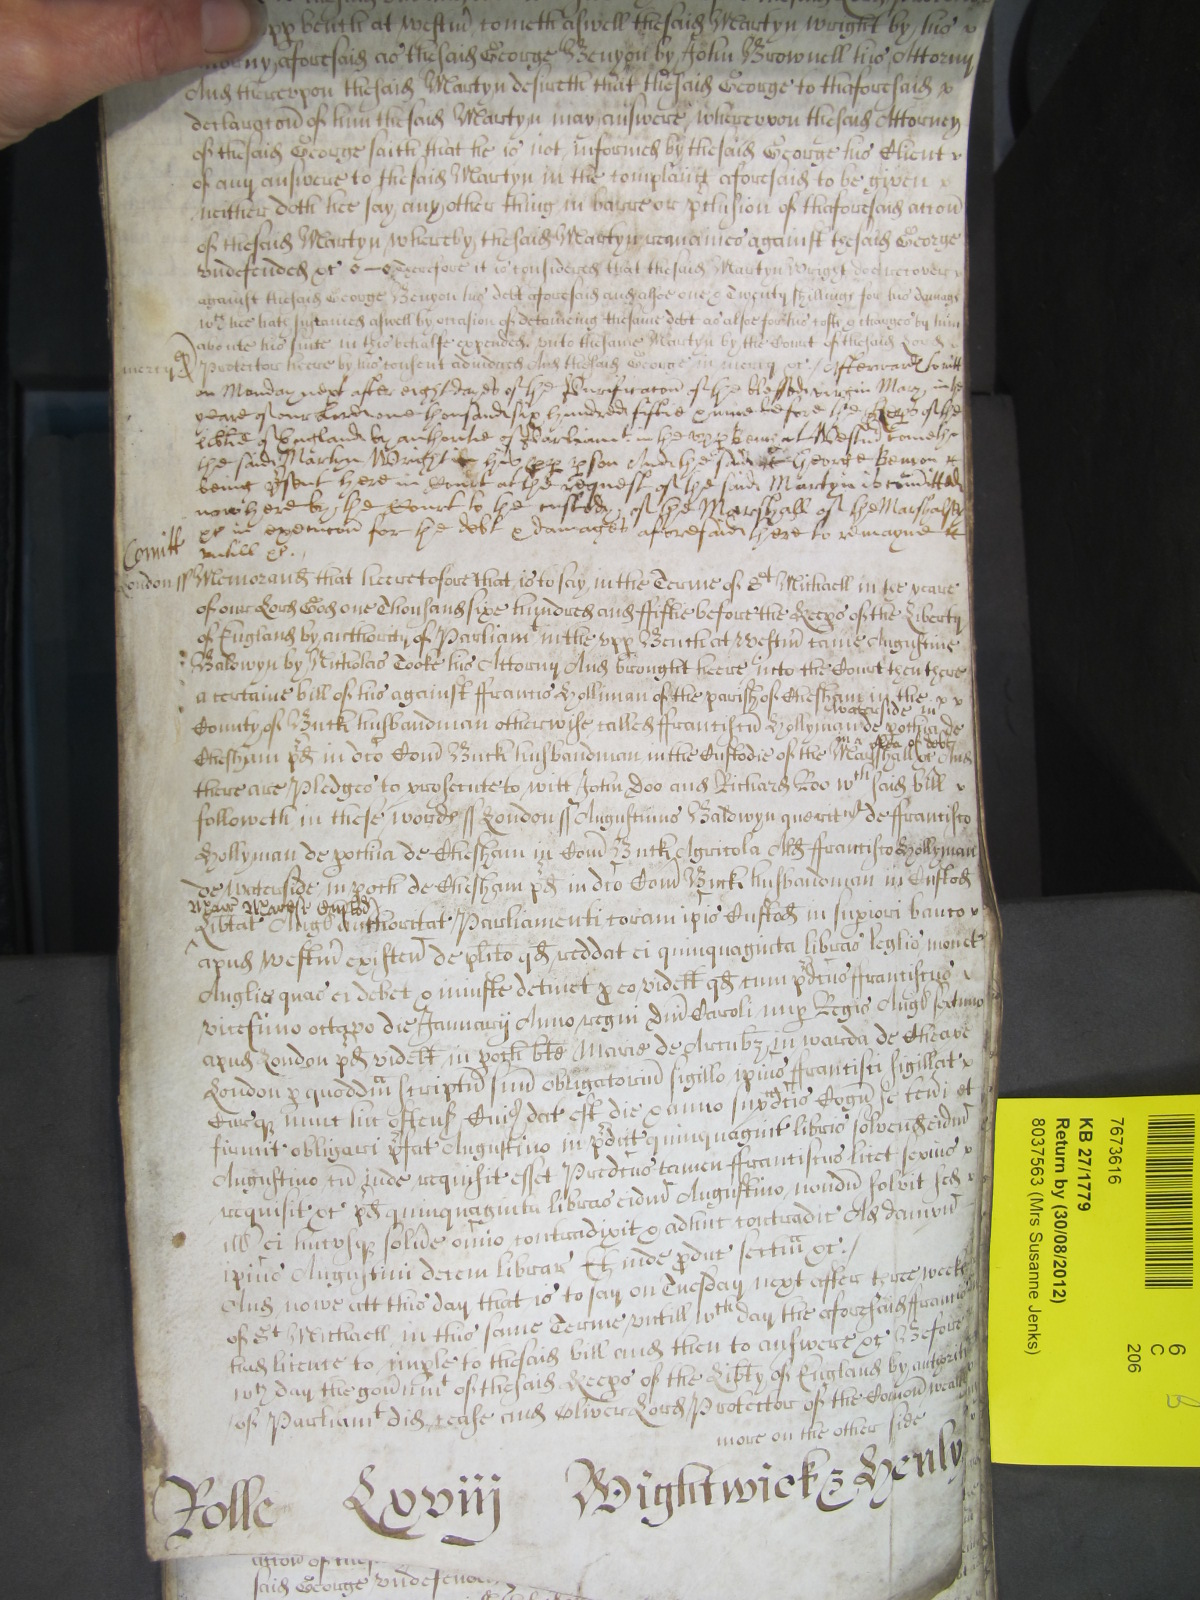 upp bench at Westm cometh aswell thesaid Martyn Wright by his
Attorny aforesaid as thesaid George Benyon by John Brownell his Attorny
And therevpon thesaid Martyn desireth that thesaid George to thaforesaid
declaracoun of him thesaid Martyn may answere, wherevpon thesaid Attorney
of thesaid George saith that he is not informed by thesaid George his Client
of any answere to thesaid Martyn in the complaint aforesaid to be given
neither doth hee say any other thing in barre or pclusion of thaforesaid accoun
of thesaid Martyn, whereby, thesaid Martyn remaines against thesaid George
vndefended &c Therefore it is considered that thesaid Martyn Wright doe recover
against thesaid George Benyon his debt aforesaid and alsoe one & Twenty shillings for his damage
wch hee hath susteined aswell by occasion of deteineing thesame debt as alsoe for his costs & charges by him
aboute his suite in this behalfe expended, vnto thesame Martyn by the Court of thesaid Lord
mercy Protector heere by his consent adiudged And thesaid George in mercy &c / Afterward
on Monday next after eight dayes of the Purificacon of the blessed virgin Mary in the
yeare of our Lord one thousand six hundred fiftie & nine before the keeps of the
libtie of England by authoritie of Parliamt in the vpp bench at Westm cometh
the said Martyn Wright in his pp pson And the said George Benion
being psent here in Court at the request of the said Martyn is comitted
now here by the Court to the custody of the Marshall of the Marshalsey
&c in execucon for the debt & damages aforesaid there to remayne
Comitt vntill &c.
London ss Memorand that heeretofore that is to say, in the Terme of St Michaell in the yeare
of our Lord God one Thousand sixe hundred and ffiftie before the Keeps of the Liberty
of England by authority of Parliamt in the vpp Bench at Westm came Augustine
Baldwyn by Nicholas Cooke his Attorny And brought heere into the Court then there
a certaine bill of his against ffrancis Holliman of the parish of Chesham in the
County of Buck husbandman otherwise called ffranciscu Hollyman de Waterside in pochia de
Chesham pd in dco Com Buck husbandman in the Custodie of the Marshall &c in a plea of debt And
there are Pledges to prosecute to witt John Doo and Richard Roo wch said bill
followeth in these words ss London ss Augustinus Baldwyn querit de ffrancisco
Hollyman de pochia de Chesham in Com Buck Agricola Als ffrancisco Hollyman
de Waterside in poch de Chesham pd in dco Com Buck husbandman in Custod
Marr Maresc Custod
Libtat Angl Authoritat Parliamenti coram ipis Custod in supiori banco
apud Westm existen de plito qd reddat ei quinquaginta libras leglis monet
Anglie quas ei debet & iniuste detinet p eo videlt qd cum pdcus ffranciscus
vicesimo octavo die Januarij Anno regni Dni Caroli nup Regis Angl sextimo
apud London pd videlt in poch bte Marie de Arcubz in warda de Cheape
London p quoddm scriptu suu obligatoriu sigillo ipius ffrancisci sigillat
Curieq nunc hic ostens Cuius dat est die & anno supdcis Cogn se teneri et
firmit obligari pfat Augustino in pdict quinquagint libris solvend eidm
Augustino cu inde requisit esset Predcus tamen ffranciscus licet sepius
requisit &c pd quinquaginta libras eidm Augustino nondu solvit sed
ill ei hucusq solve omio contradixit & adhuc contradic Ad dampnu
ipius Augustini decem librar Et inde pduc sectm &c /
And nowe att this day that is to say on Tuesday next after three weeks
of St Michaell in this same Terme, vntill wch day the aforesaid ffrancis
had licence to imple to thesaid bill and then to answere &c Before
wch day the govrnmt of thesaid Keeps of the Libty of England by authority
of Parliamt did cease and Oliver Lord Protector of the Comonwealth
more on the other side
Rolle Lxviij Wightwick & Henly
said George vndefended
7673616
KB 27/1779
Return by (30/08/2012)
8037563 (Mrs Susanne Jenks)
6
C
206